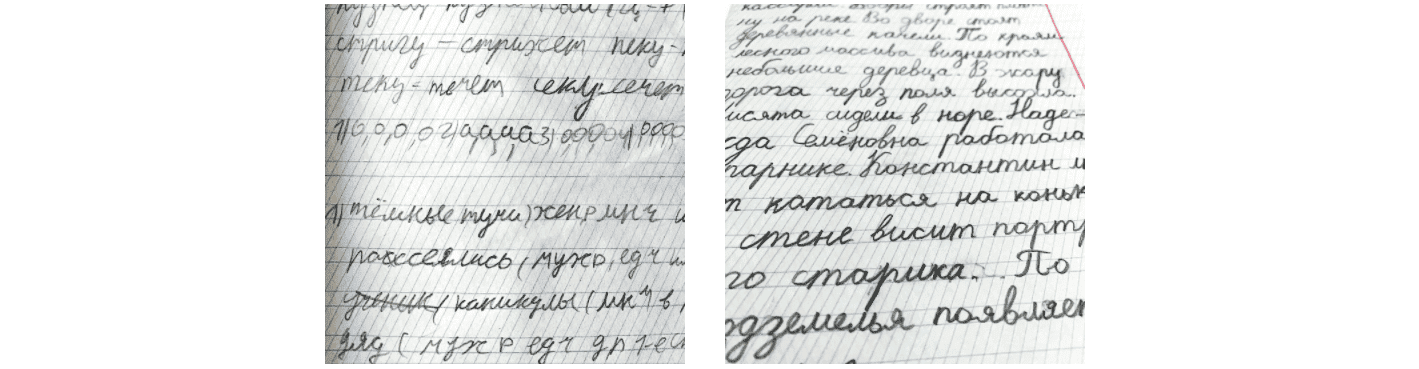 стригу – стрижет пеку-
теку - течет секу сечет
1) о, о, о, о 2) а, а, а, а 3)
1) тёмные (тучи) жен р мн ч
рассеялись ( муж р, ед ч
ученик ( каникулы ( мн ч в
( муж р ед ч др 1-е с
ну на реке Во дворе стоят
деревянные панели. По краям
лесного массива виднеются
небольшие деревца. В жару
дорога через поля высохла.
исята сидели в норе. Наде-
жда Семёновна работала
парнике. Константин
т кататься на коньк
стене висит портр
го старика. По
одземелья появляет